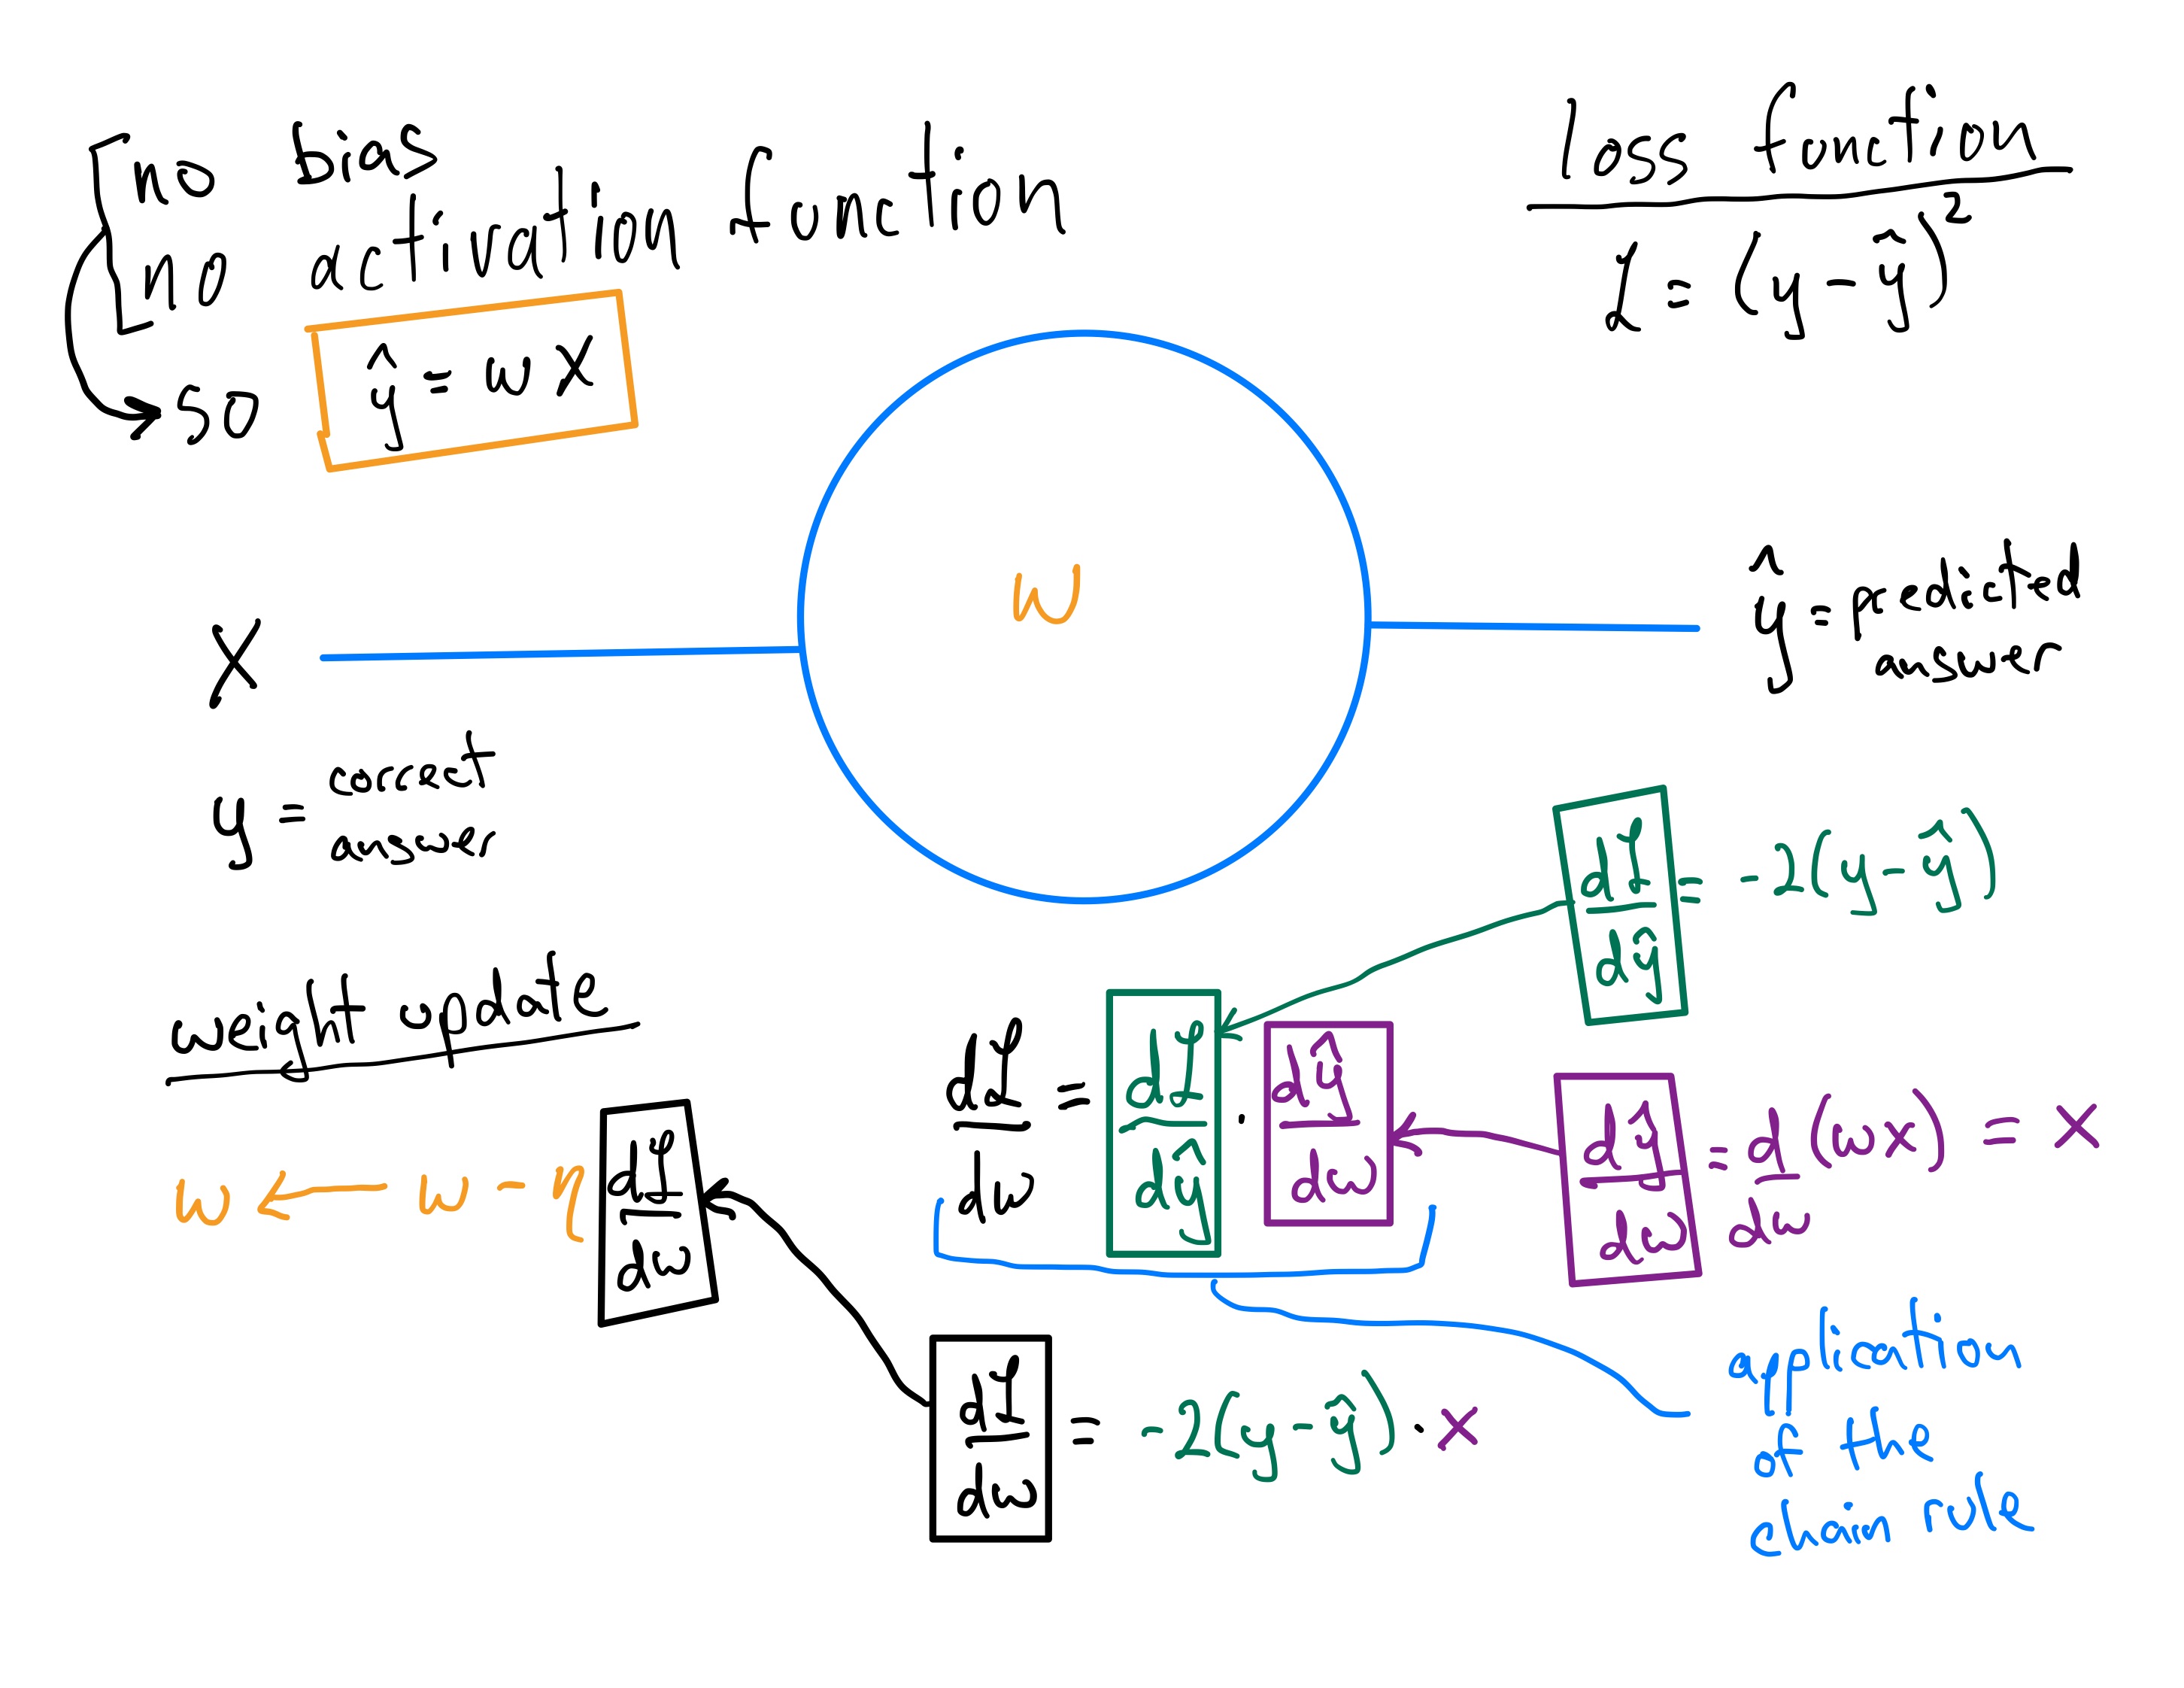 no bias
no activation function
so ŷ = wx
loss function
L = (y - ŷ)²
w
x
ŷ = predicted
answer
y = correct
answer
weight update
w ← w - η dL/dw
dL/dw = dL/dŷ · dŷ/dw
dL/dŷ = -2(y - ŷ)
dŷ/dw = d/dw (wx) = x
dL/dw = -2(y - ŷ) · x
application
of the
chain rule